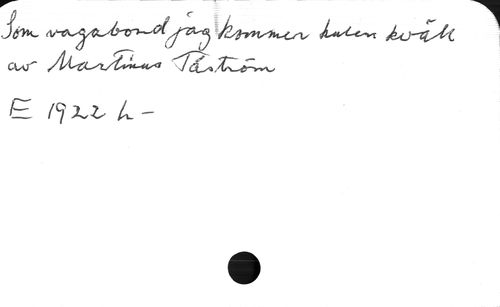 Som vagabond jag kommer kulen kväll
av Martinus Tåström
E 1922 h-